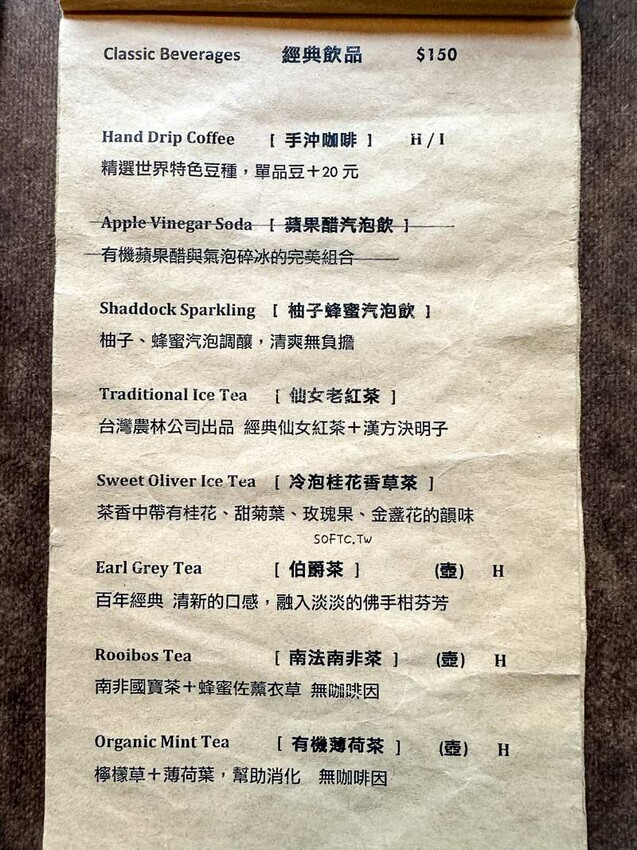 Classic Beverages 經典飲品 $150
Hand Drip Coffee [ 手沖咖啡 ] H / I
精選世界特色豆種，單品豆＋20 元
Apple Vinegar Soda [ 蘋果醋汽泡飲 ]
有機蘋果醋與氣泡碎冰的完美組合
Shaddock Sparkling [ 柚子蜂蜜汽泡飲 ]
柚子、蜂蜜汽泡調釀，清爽無負擔
Traditional Ice Tea [ 仙女老紅茶 ]
台灣農林公司出品 經典仙女紅茶＋漢方決明子
Sweet Oliver Ice Tea [ 冷泡桂花香草茶 ]
茶香中帶有桂花、甜菊葉、玫瑰果、金盞花的韻味
SOFTC.TW
Earl Grey Tea [ 伯爵茶 ] (壺) H
百年經典 清新的口感，融入淡淡的佛手柑芬芳
Rooibos Tea [ 南法南非茶 ] (壺) H
南非國寶茶＋蜂蜜佐薰衣草 無咖啡因
Organic Mint Tea [ 有機薄荷茶 ] (壺) H
檸檬草＋薄荷葉，幫助消化 無咖啡因